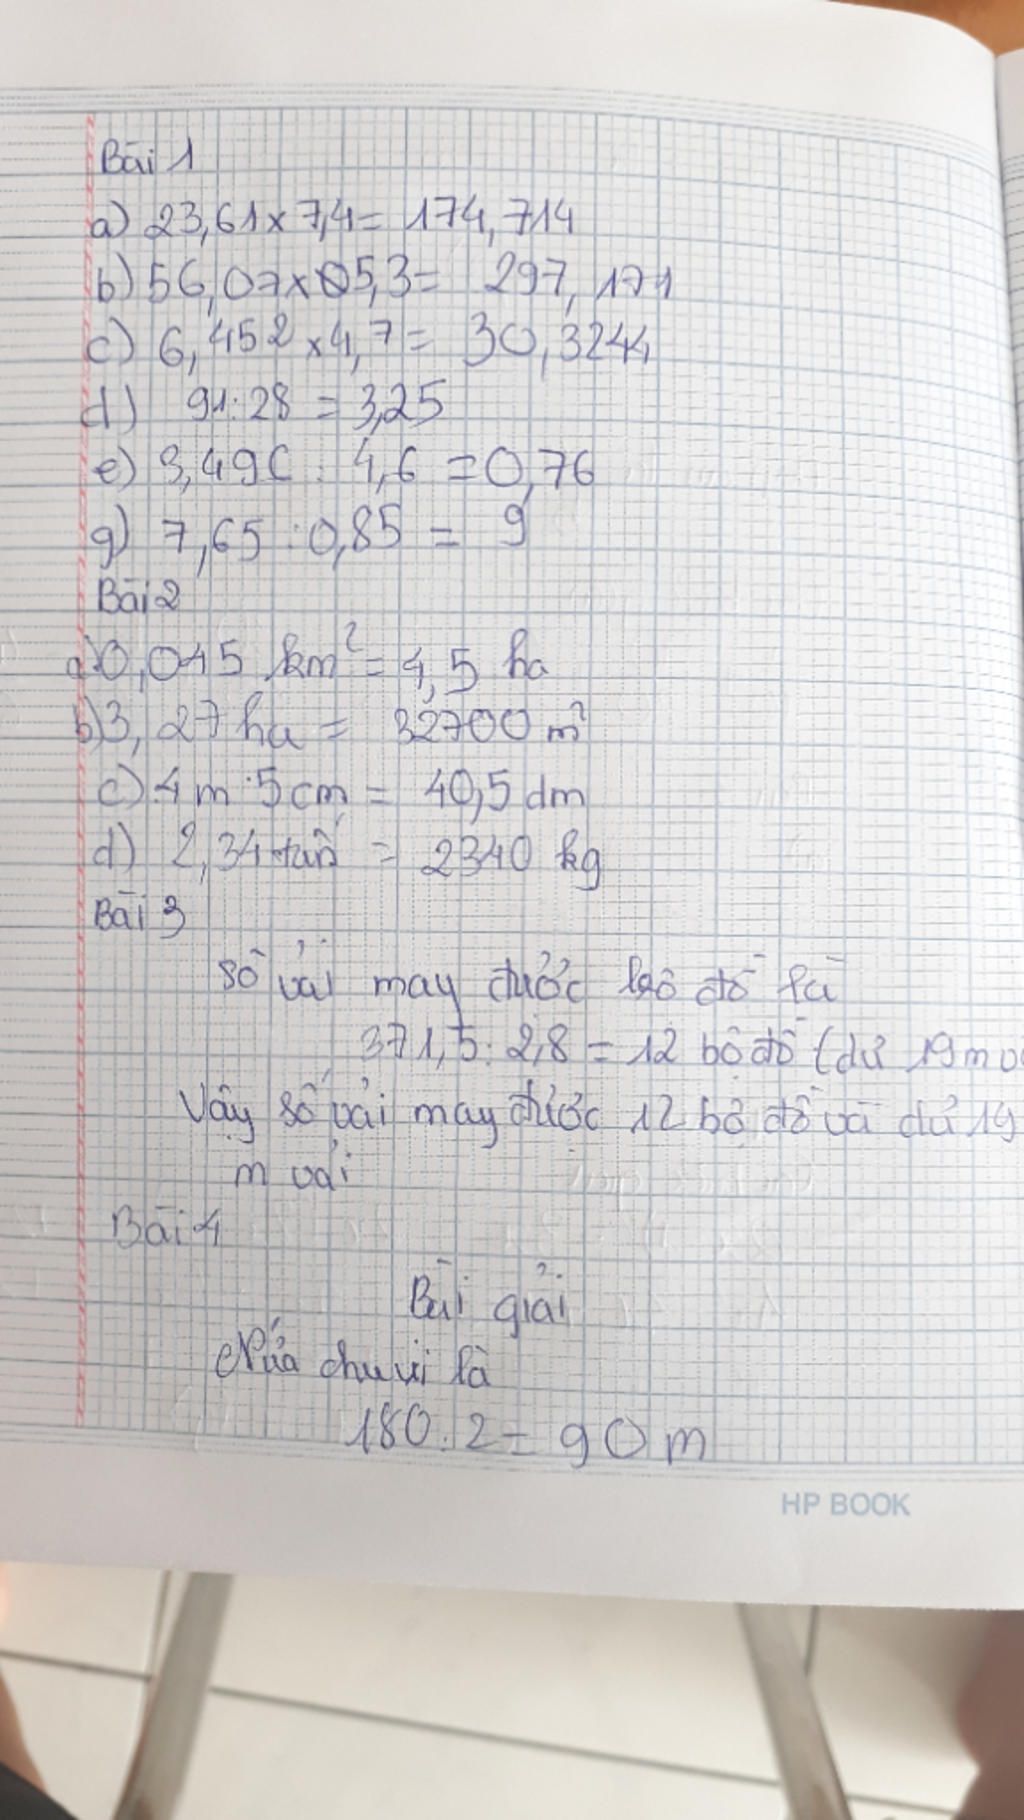 Bài 1
a) 23,61 x 7,4 = 174,714
b) 56,07 x 5,3 = 297,171
c) 6,452 x 4,7 = 30,3244
d) 91 : 28 = 3,25
e) 3,496 : 4,6 = 0,76
g) 7,65 : 0,85 = 9
Bài 2
a) 0,045 km² = 4,5 ha
b) 3,27 ha = 32700 m²
c) 4 m 5 cm = 40,5 dm
d) 2,34 tấn = 2340 kg
Bài 3
Số vải may được bộ đồ là
371,5 : 2,8 = 12 bộ đồ (dư 19 m
Vậy số vải may được 12 bộ đồ và dư 19
m vải
Bài 4
Bài giải
Nửa chu vi là
180 : 2 = 90 m
HP BOOK